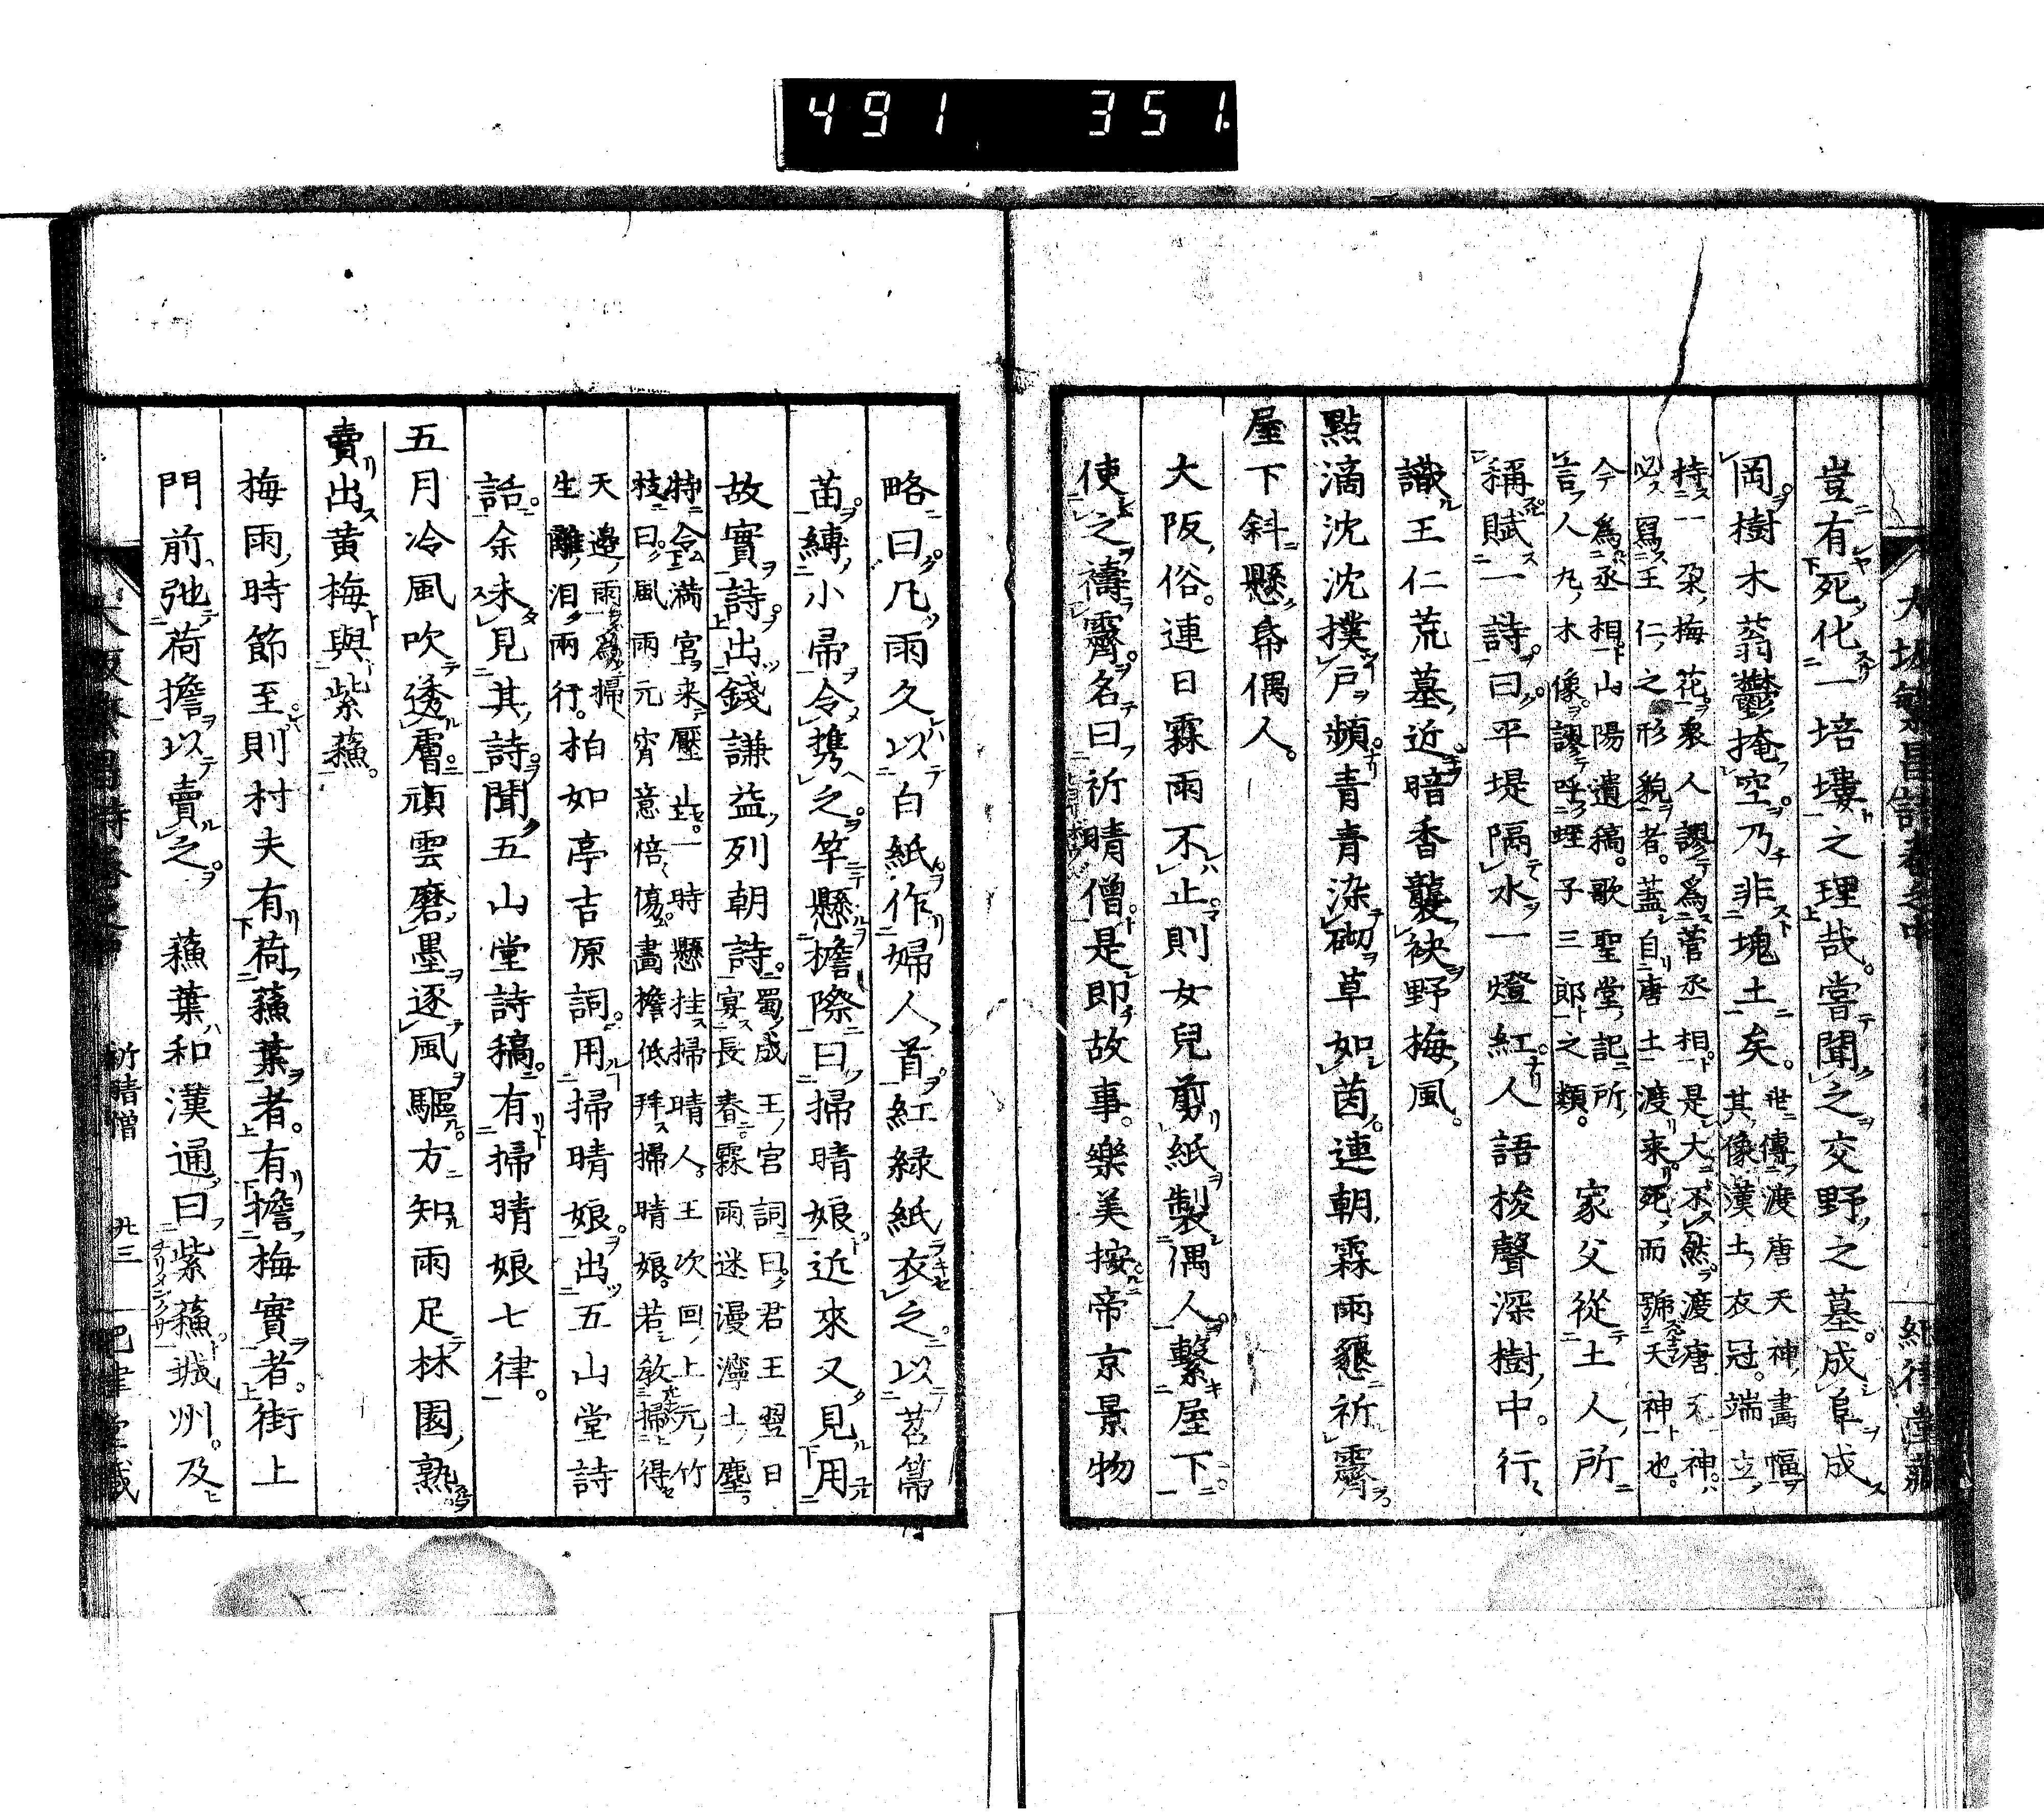 491 351
大坂繁昌詩卷之中
豈有死化一培塿之理哉。嘗聞之交野之墓。成阜成
岡。樹木蓊鬱掩空。乃非塊土矣。世傳渡唐天神畫幅
其像漢土衣冠。端立
持一朶梅花。衆人謬爲菅丞相。是大不然。渡唐天神。
必寫王仁之形貌者。蓋自唐土渡来。死而號天神也。
今爲丞相。山陽遺稿。歌聖堂記所
言人九木像謬呼蛭子三郎之類。
家父從土人所
稱賦一詩曰。平堤隔水一燈紅。人語梭聲深樹中。行
識王仁荒墓近。暗香襲袂野梅風。
點滴沈沈撲戸頻。青青染砌草如茵。連朝霖雨懇祈霽。
屋下斜懸帋偶人。
大阪俗。連日霖雨不止。則女兒剪紙製偶人。繫屋下
使之禱霽。名曰祈晴僧。是即故事。樂美按帝京景物
略曰。凡雨久。以白紙作婦人首。紅緑紙衣之。以苕箒
苗縛小帚。令携之。竿懸檐際。曰掃晴娘。近來又見用
故實詩。出錢謙益列朝詩。蜀成王宮詞曰。君王翌日
宴長春。霖雨迷漫濘土塵。
特令滿宮来壓𡈽。一時懸挂掃晴人。王次回上元竹
枝曰。風雨元宵意倍傷。畫檐低拜掃晴娘。若教掃得
天邊雨。爲掃
生離泪兩行。
柏如亭吉原詞。用掃晴娘。出五山堂詩
話。余未見其詩。聞五山堂詩稿。有掃晴娘七律。
五月冷風吹透膚。頑雲磨墨逐風驅。方知雨足林園熟。
賣出黄梅與紫蘓。
梅雨時節至。則村夫有荷蘓葉者。有擔梅實者。街上
門前。弛荷擔以賣之。蘓葉和漢通曰紫蘓。城州。及
祈晴僧 廿三